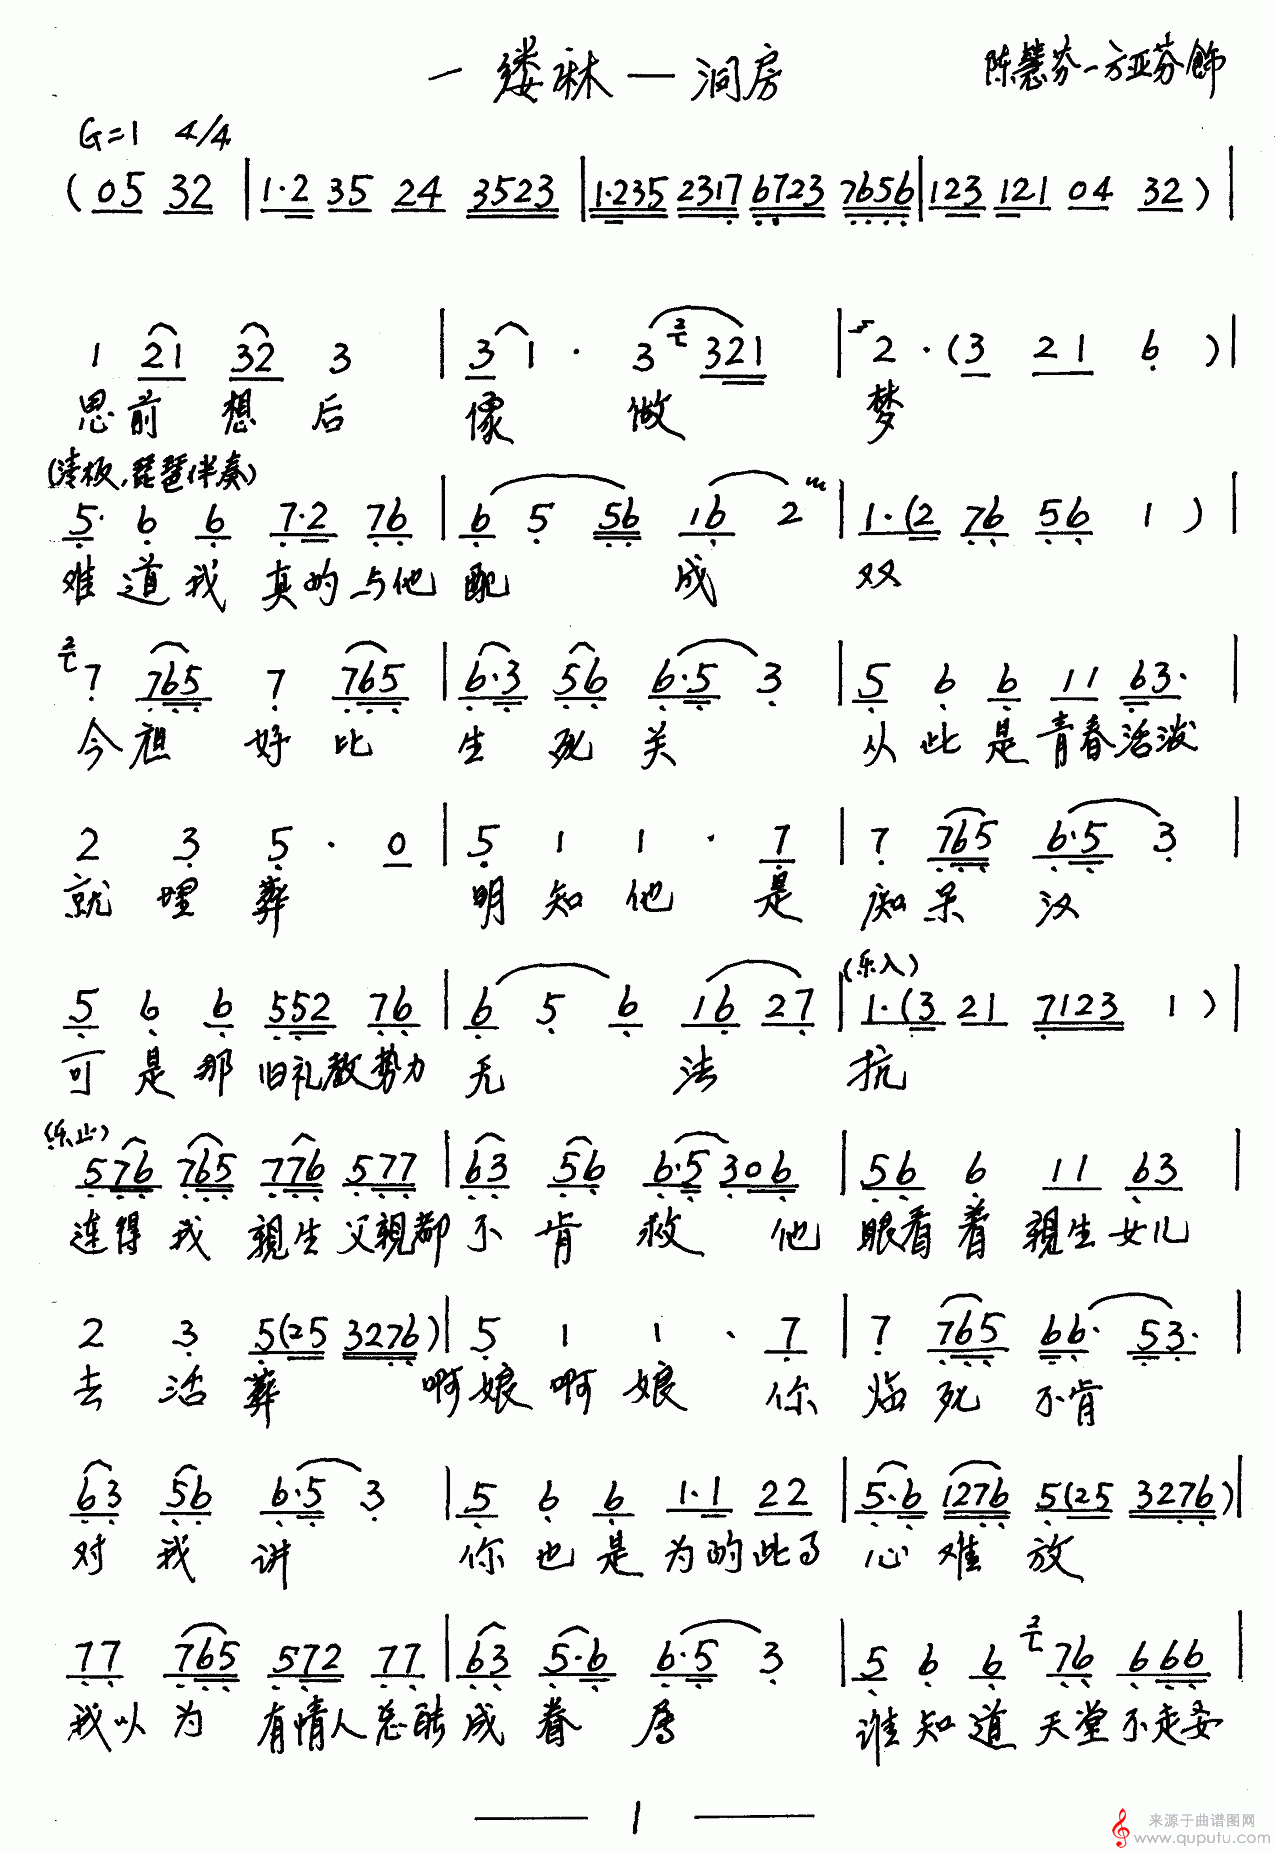 一缕麻—洞房
陈慧芬—方亚芬饰
G=1 4/4
(05 32 | 1·2 35 24 3523 | 1·235 2317 6723 7656 | 123 121 04 32) |
1 21 32 3 | 3 1 · 3 2 321 | 2 · (3 21 6) |
思前想后 像做 梦
(清板,琵琶伴奏)
5· 6 6 7·2 76 | 6 5 56 16 2 | 1·(2 76 56 1) |
难道我真的与他配成双
2
7 765 7 765 | 6·3 56 6·5 3 | 5 6 6 11 63· |
今夜好比生死关 从此是青春活泼
2 3 5 · 0 | 5 1 1 · 7 | 7 765 6·5 3 |
就埋葬 明知他是痴呆汉
(乐入)
5 6 6 552 76 | 6 5 6 16 27 | 1·(3 21 7123 1) |
可是那旧礼教势力无法抗
(乐止)
576 765 776 577 | 63 56 6·5 306 | 56 6 11 63
连得我親生父親都不肯救他 眼看着親生女儿
2 3 5(25 3276) | 5 1 1 · 7 | 7 765 66· 53· |
去活葬 啊娘啊娘你临死不肯
63 56 6·5 3 | 5 6 6 1·1 22 | 5·6 1276 5(25 3276) |
对我讲 你也是为的此事心难放
77 765 572 77 | 63 5·6 6·5 3 | 5 6 6 2 76 666 |
我以为有情人总能成眷属 谁知道天堂不走要
1
来源于曲谱图网
www.quputu.com